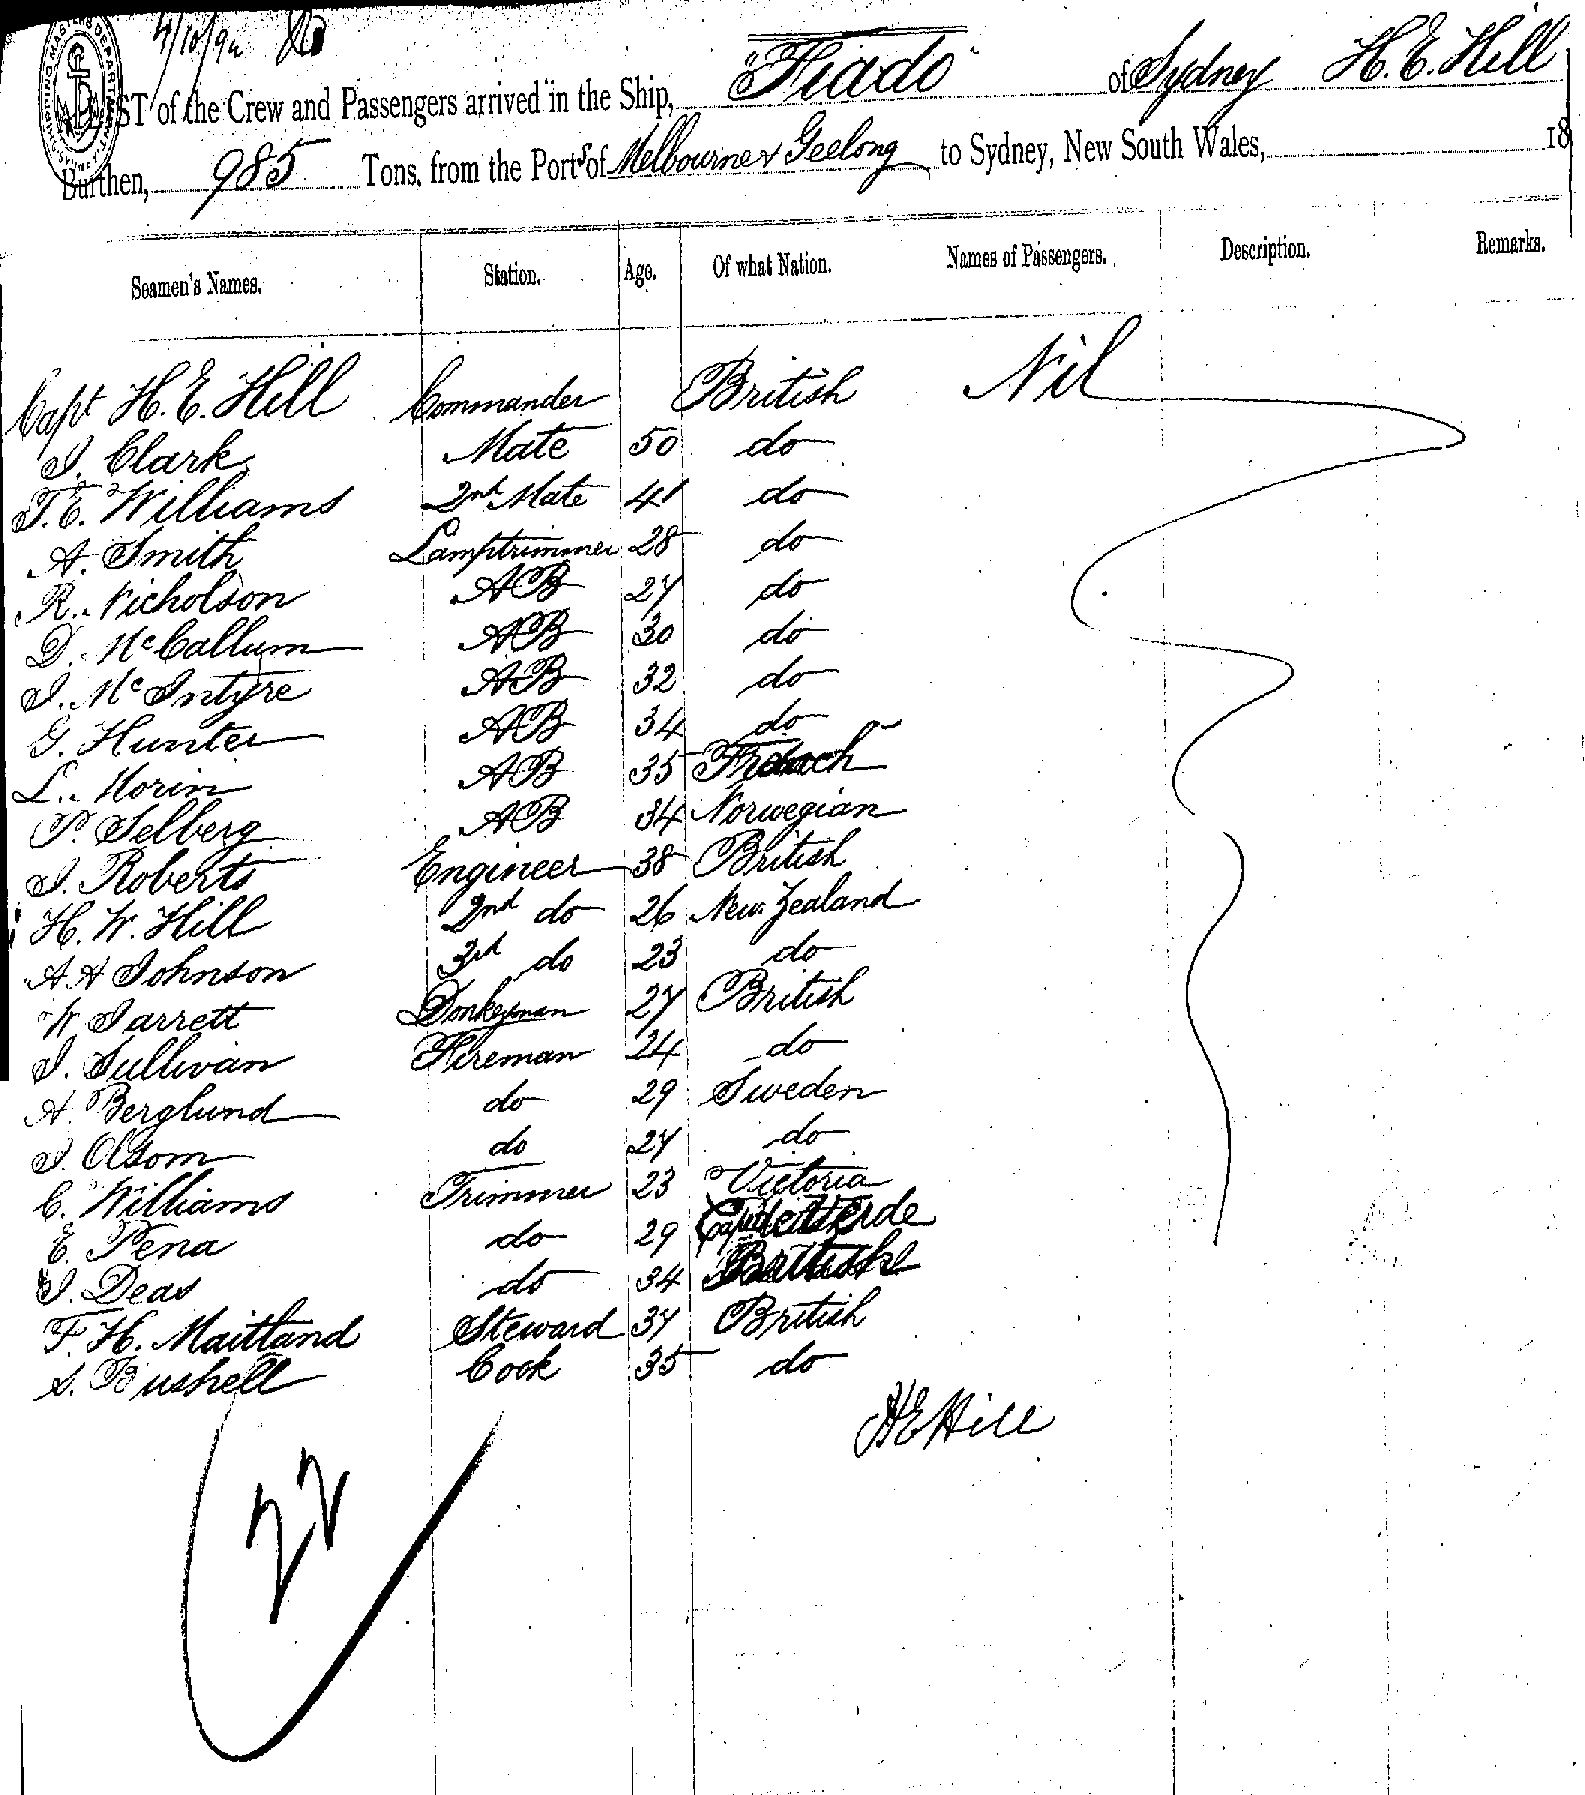 4/10/92
LIST of the Crew and Passengers arrived in the Ship, "Fiado" of Sydney H. E. Hill
Burthen, 985 Tons, from the Ports of Melbourne & Geelong to Sydney, New South Wales, 18
Seamen's Names. Station. Age. Of what Nation. Names of Passengers. Description. Remarks.
Capt H. E. Hill Commander British Nil
J. Clark Mate 50 do
T. E. Williams 2nd Mate 41 do
A. Smith Lamptrimmer 28 do
R. Nicholson AB 27 do
D. McCallum AB 30 do
J. McIntyre AB 32 do
G. Hunter AB 34 do
L. Morin AB 35 French
P. Selberg AB 34 Norwegian
J. Roberts Engineer 38 British
H. W. Hill 2nd do 26 New Zealand
A H Johnson 3rd do 23 do
W Jarrett Donkeyman 27 British
J. Sullivan Fireman 24 do
A. Berglund do 29 Sweden
J. Olsom do 27 do
C. Williams Trimmer 23 Victoria
E. Pena do 29 Cape de Verde
J. Deas do 34 British
F. H. Maitland Steward 37 British
S. Bushell Cook 35 do
H E Hill
22